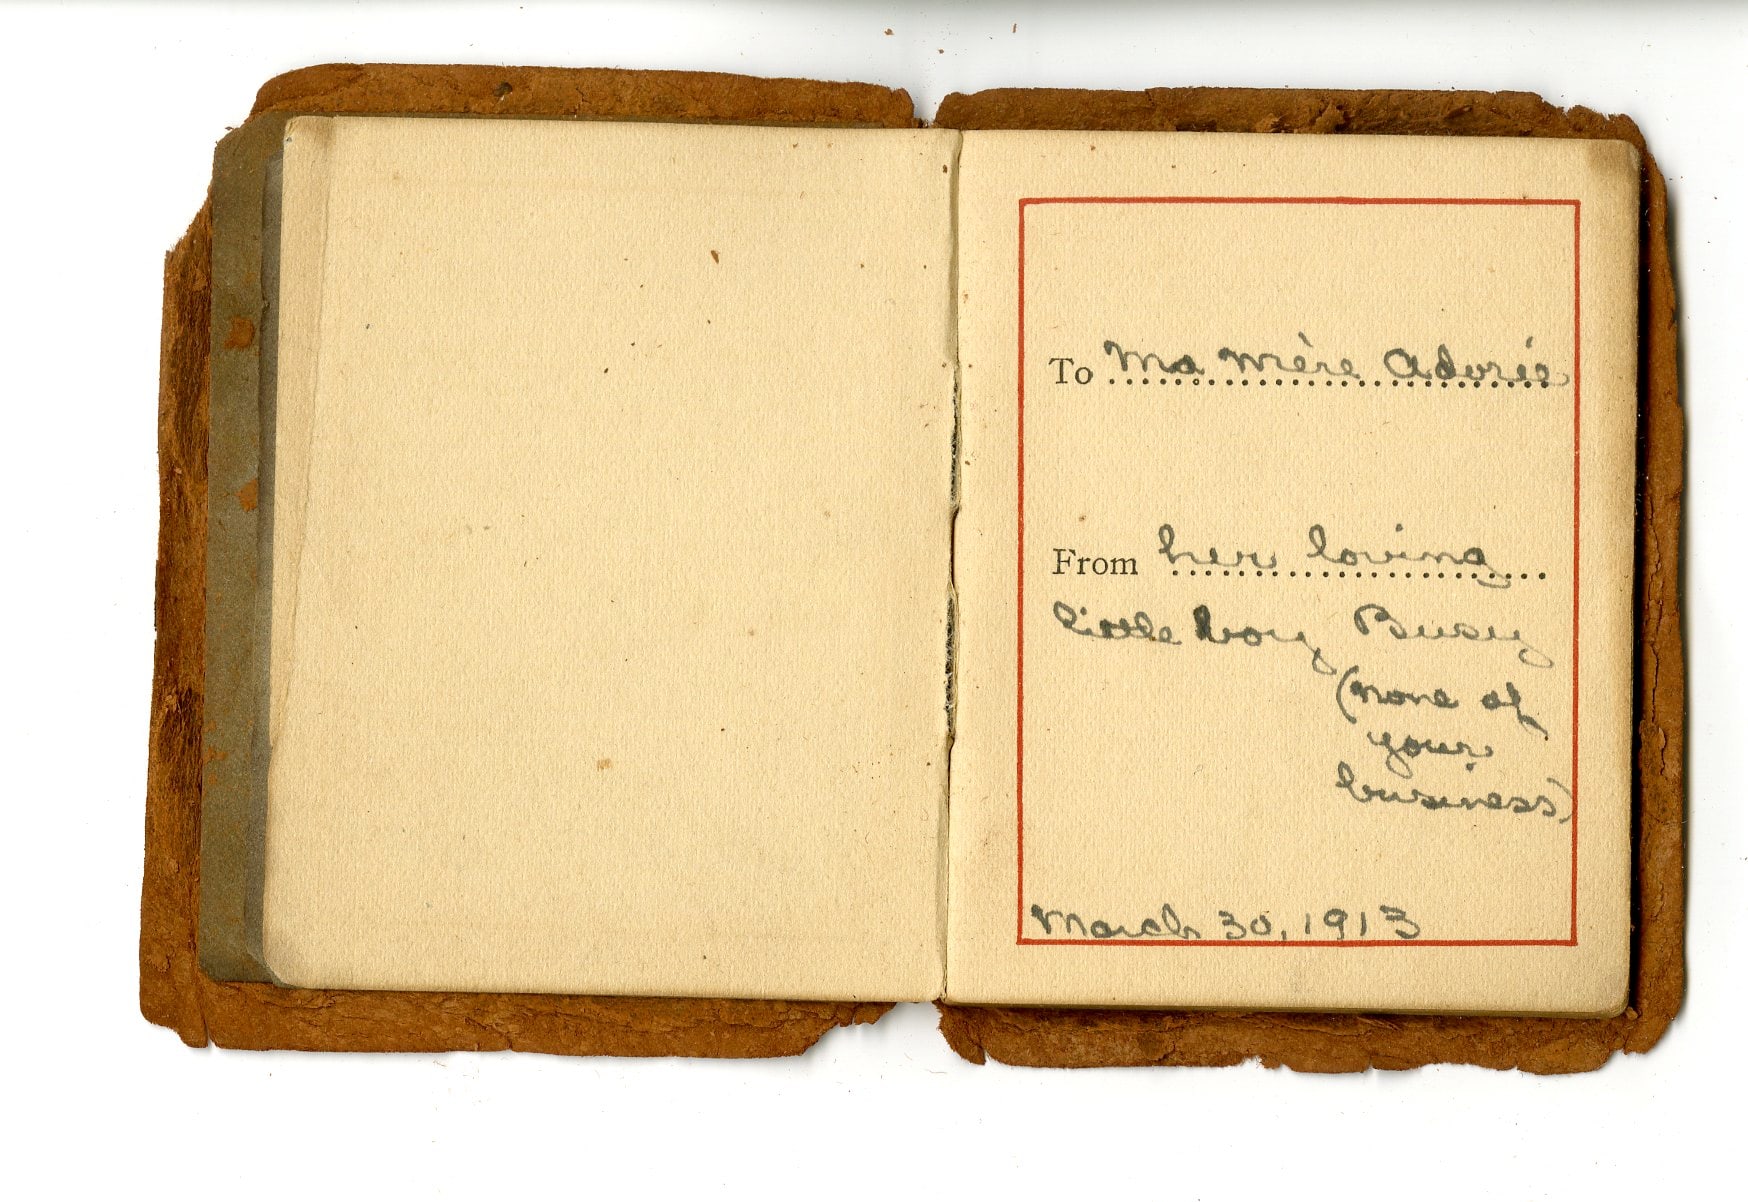 To Ma mère Adorée
From her loving
little boy Busy
(none of
your
business)
March 30, 1913